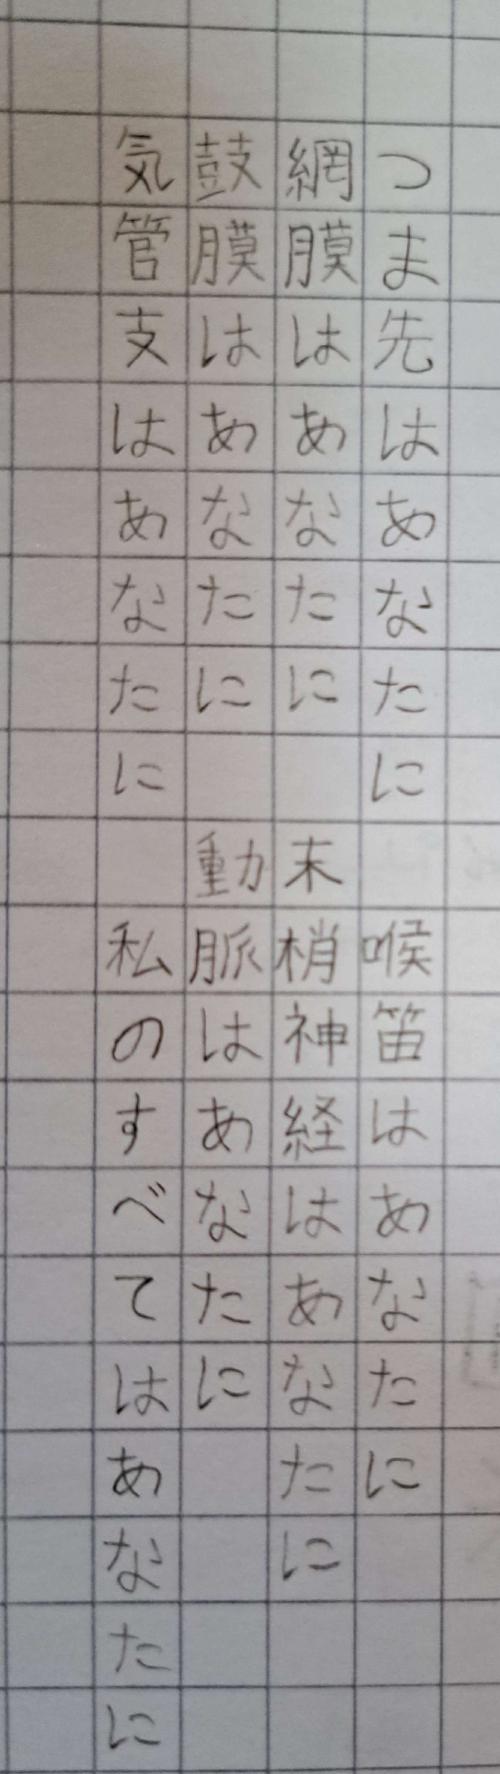 つま先はあなたに　喉笛はあなたに
網膜はあなたに　末梢神経はあなたに
鼓膜はあなたに　動脈はあなたに
気管支はあなたに　私のすべてはあなたに